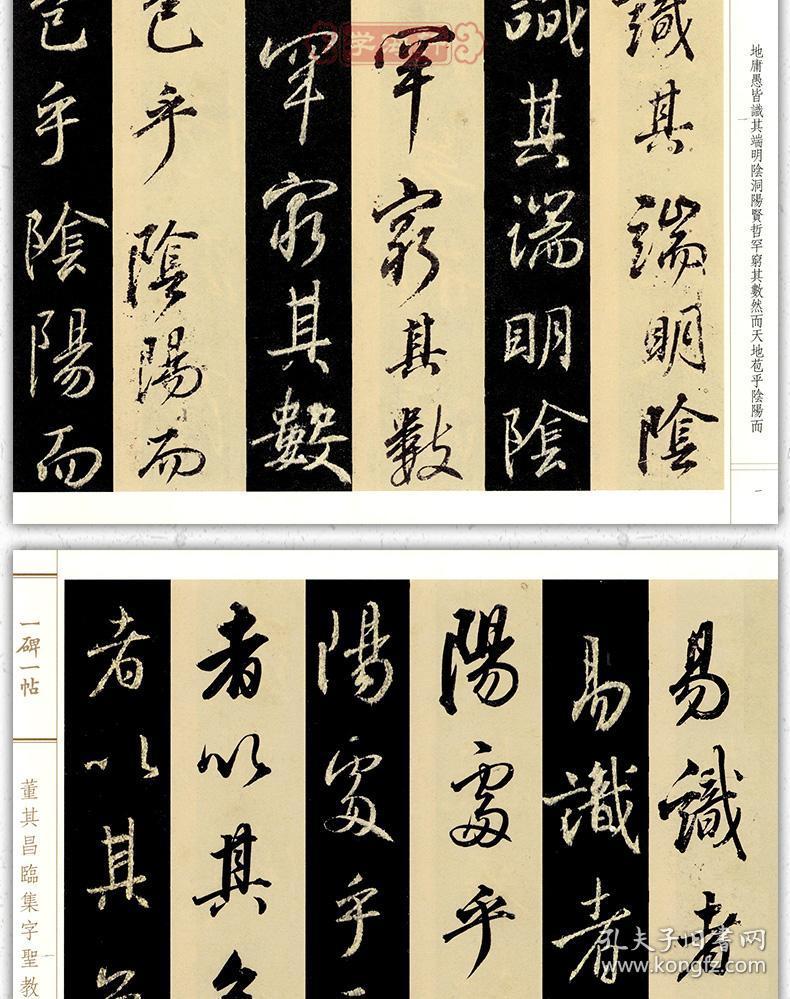 地庸愚皆識其端明陰洞陽賢哲罕窮其數然而天地苞乎陰陽而
一
識其端明陰
識其端明陰
罕窮其數
罕窮其數
苞乎陰陽而
苞乎陰陽而
易識者
易識者
陽處乎
陽處乎
者以其
者以其
一碑一帖
董其昌臨集字聖教
孔夫子旧书网
www.kongfz.com